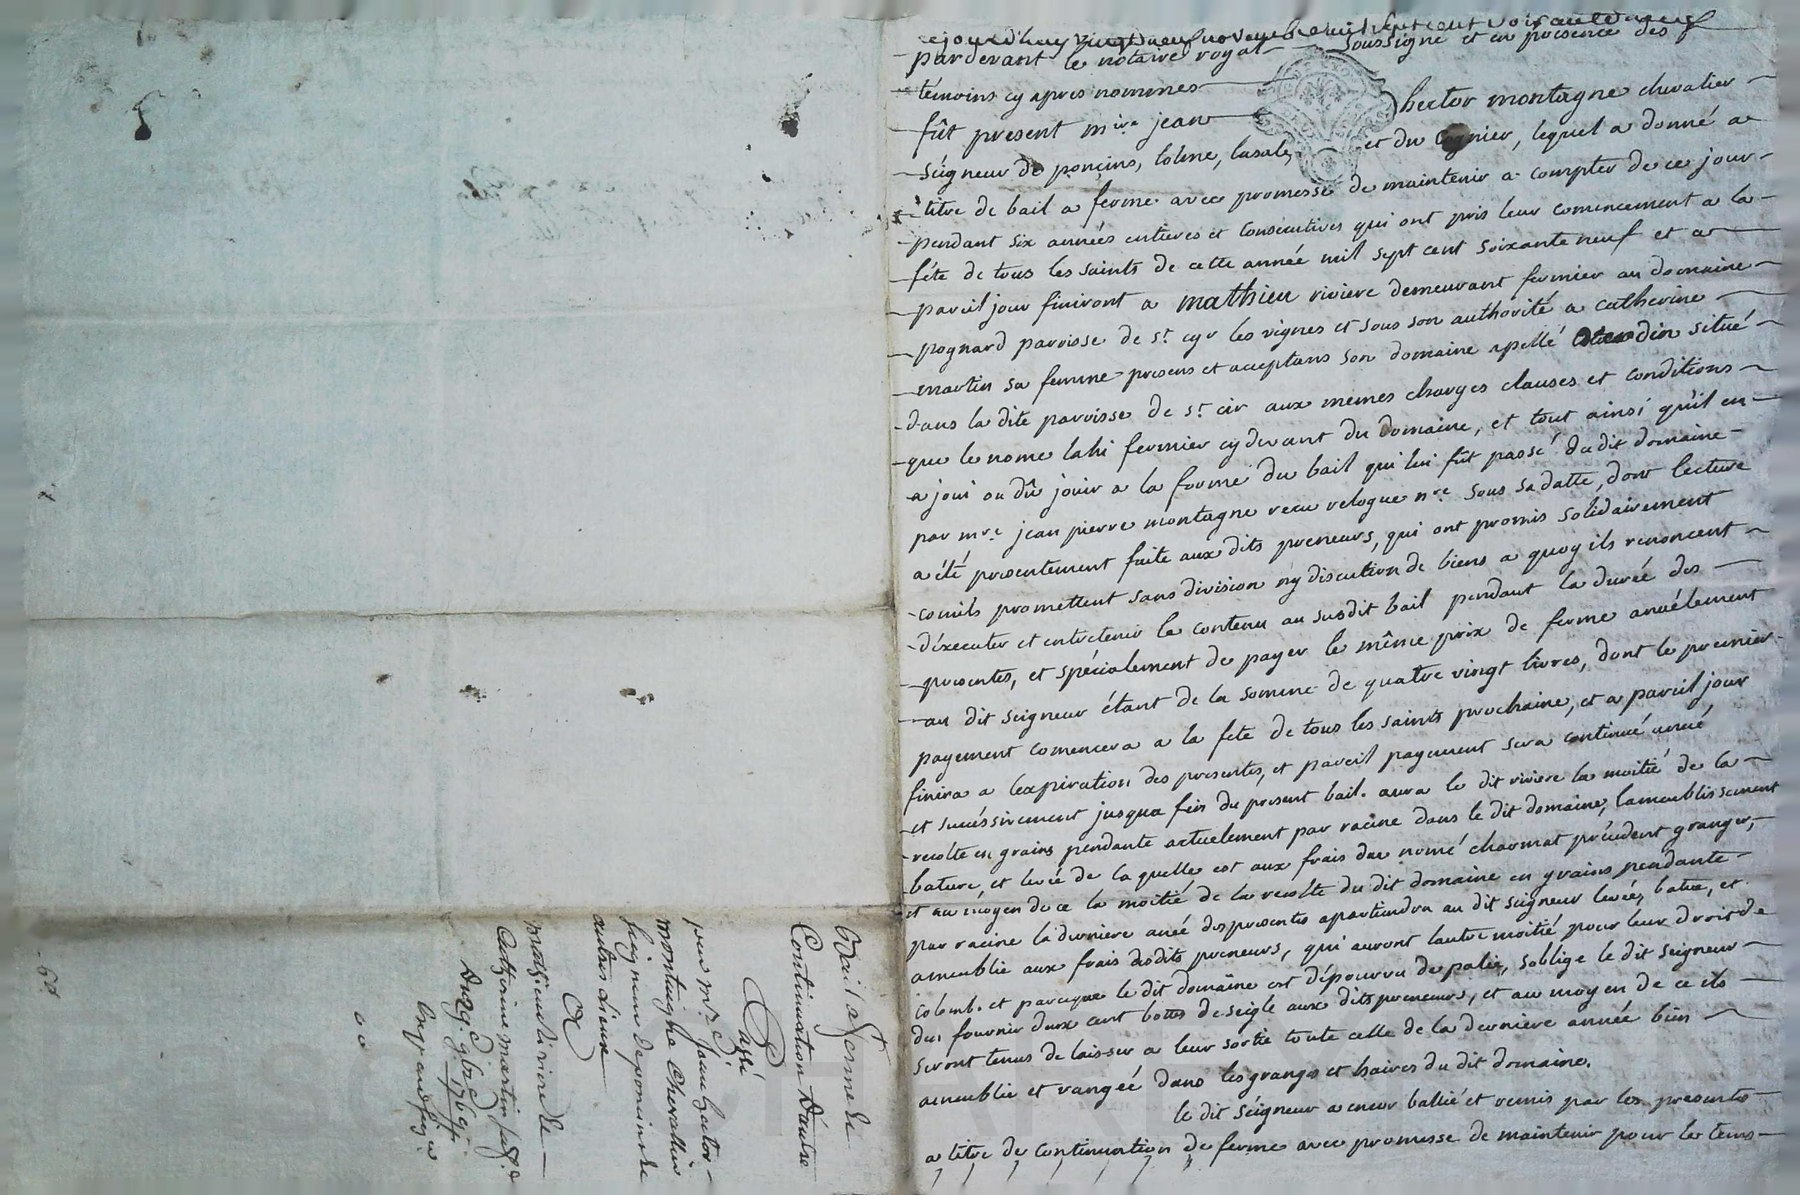 cejourdhuy vingt neuf novembre mil sept cent soixante neuf
pardevant le notaire royal soussigné et en presence des
temoins cy apres nommes
fût present m.ire jean hector montagne chevalier
séigneur de poncins, la salle et du lequel a donné a
titre de bail a ferme avec promesse de maintenir a compter de ce jour
pendant six années entieres et consecutives qui ont pris leur comencement a la
fête de tous les saints de cette année mil sept cent soixante neuf et a
pareil jour finiront a mathieu riviere demeurant fermier au domaine
pognard paroisse de s.t cyr les vignes et sous son authorité a catherine
martin sa femme presens et acceptans son domaine apellé situé
dans la dite paroisse de s.t cir aux memes charges clauses et conditions
que le nome lahi fermier cydevant du domaine, et tout ainsi qu'il en
a joui ou dû jouir a la forme du bail qui lui fût passé du dit domaine
par m.re jean pierre montagne recu relogue n.re sous sa datte, dont lecture
a été presentement faite aux dits preneurs, qui ont promis solidairement
comils promettent sans division ny discution de biens a quoy ils renoncent
d'éxecuter et entretenir le contenu au susdit bail pendant la durée des
presentes, et spécialement de payer le même prix de ferme anuélement
au dit seigneur étant de la somme de quatre vingt livres, dont le premier
payement comencera a la fete de tous les saints prochaine, et a pareil jour
finira a lexpiration des presentes, et pareil payement sera continué
et succéssivement jusqua fin du present bail. aura le dit riviere la moitié de la
recolte en grains pendante actuelement par racine dans le dit domaine, lameublissement
bature, et levée de laquelle est aux frais du nomé charmat précedent granger,
et au moyen de ce la moitié de la recolte du dit domaine en grains pendante
par racine la derniere anée des presentes apartiendra au dit seigneur levée, batue, et
ameublie aux frais desdits preneurs, qui auront lautre moitié pour leur droit de
colons. et parceque le dit domaine est dépourvu de palie, soblige le dit seigneur
de fournir deux cent bottes de seigle aux dits preneurs, et au moyen de ce ils
seront tenus de laisser a leur sortie toute celle de la derniere année bien
ameublie et rangée dans les granges et du dit domaine.
le dit séigneur a encor ballié et remis par les presentes
a titre de continuation de ferme avec promesse de maintenir pour le tems
Bail a ferme &
Continuation d'autre
Passé
par m.re Jean hector
montaigne chevallier
seigneur de poncins &
autres lieux
a
mathieu riviere &
Catherine martin
Du 29. 9bre
1769.